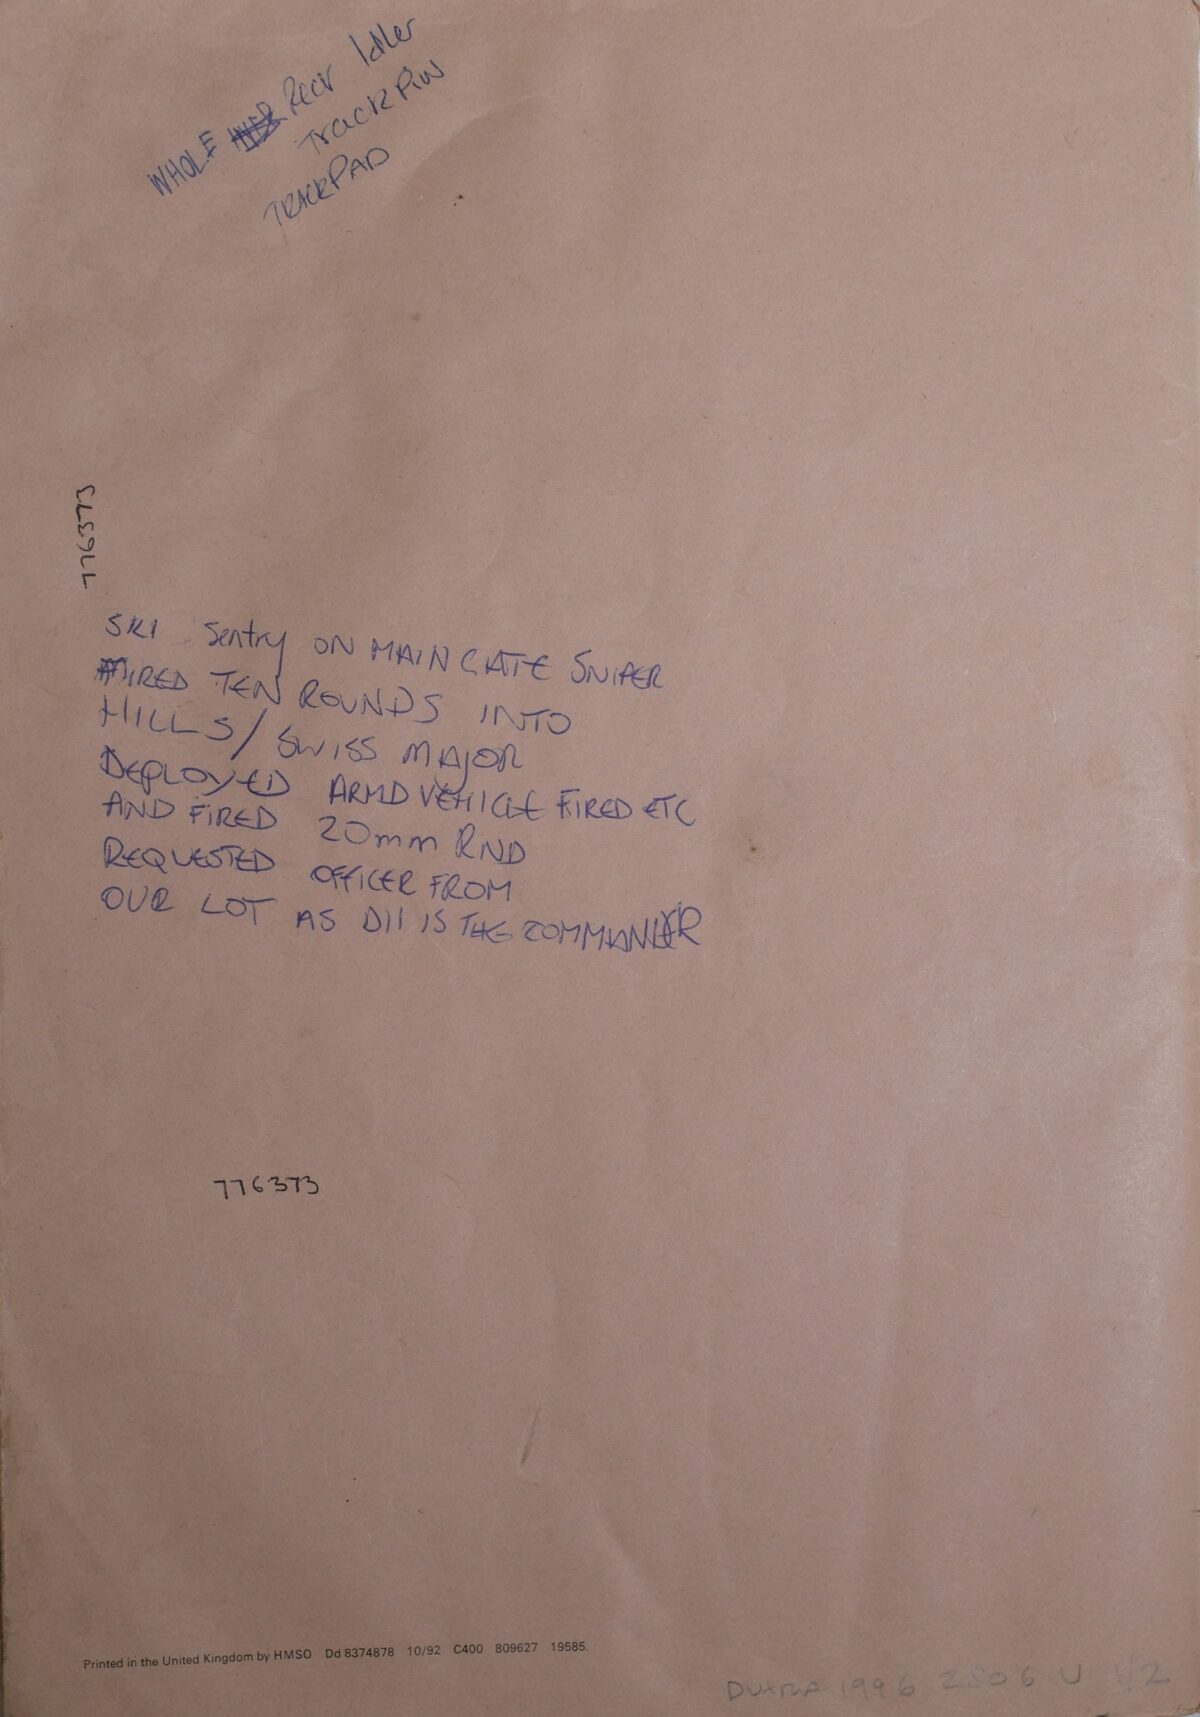 WHOLE Rear Idler
Track Pin
TRACK PAD
776373
SRI Sentry ON MAIN GATE SNIPER
FIRED TEN ROUNDS INTO
HILLS / SWISS MAJOR
DEPLOYED ARMD VEHICLE FIRED ETC
AND FIRED 20mm RND
REQUESTED OFFICER FROM
OUR LOT AS DII IS THE COMMANDER
776373
Printed in the United Kingdom by HMSO Dd 8374878 10/92 C400 809627 19585.
1996 2806 U 1/2